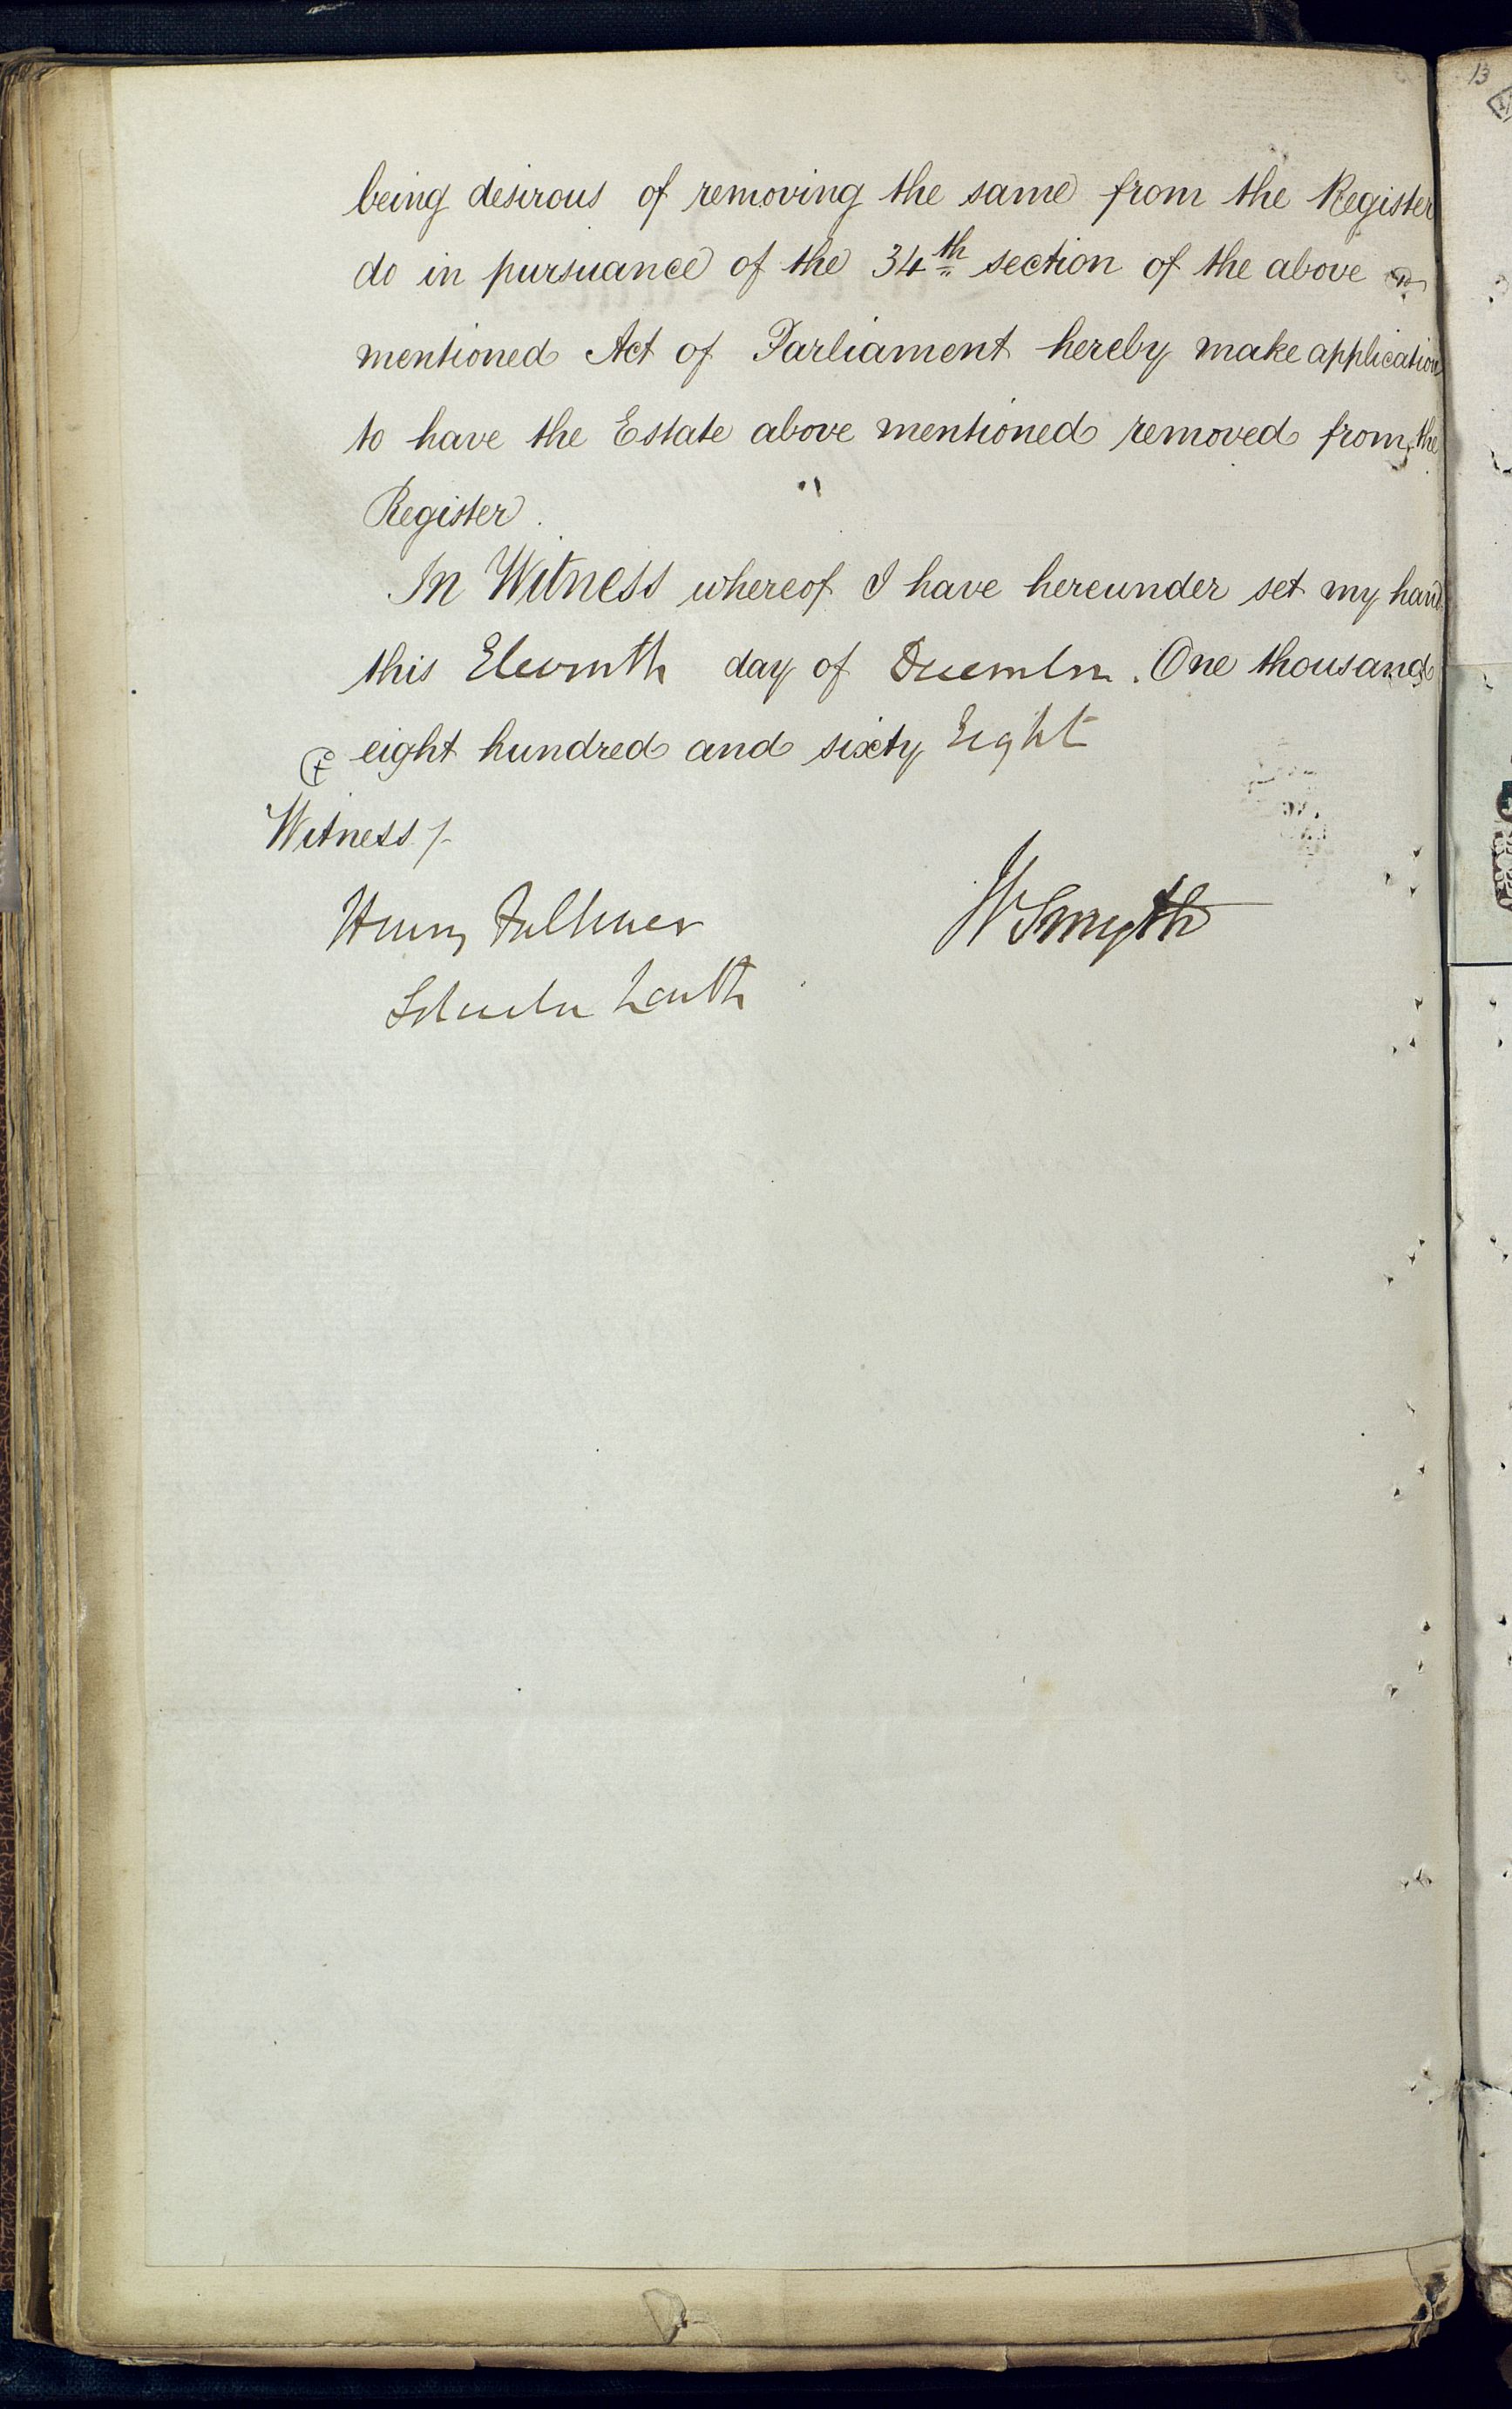 13
being desirous of removing the same from the Register
do in pursuance of the 34th section of the above
mentioned Act of Parliament hereby make application
to have the Estate above mentioned removed from the
Register.
In Witness whereof I have hereunder set my hand
this Eleventh day of December. One thousand
eight hundred and sixty Eight
Witness/-
Henry Falkner
W Smyth
Solicitor Louth